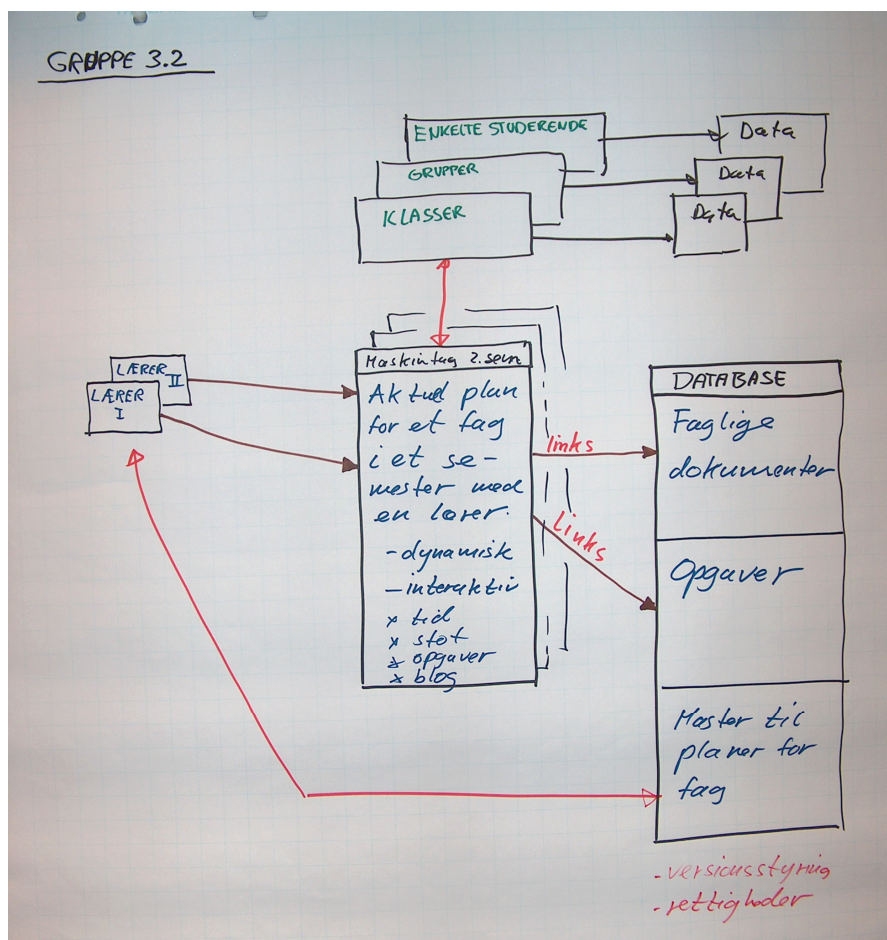 GRUPPE 3.2
ENKELTE STUDERENDE
Data
GRUPPER
Data
KLASSER
Data
LÆRER
II
LÆRER
I
Maskinfag 2. sem
Aktuel plan
for et fag
i et se-
mester med
en lærer.
- dynamisk
- interaktiv
x tid
x stof
x opgaver
x blog
links
Links
DATABASE
Faglige
dokumenter
Opgaver
Master til
planer for
fag
- versionsstyring
- rettigheder